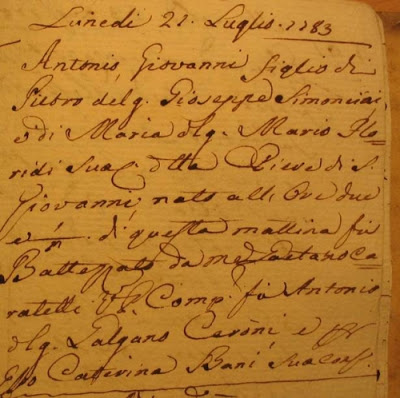 Lunedi 21. Luglio. 1783
Antonio, Giovanni figlio di
Pietro del q. Giuseppe Simoncini
e di Maria del q. Mario Flo=
ridi Suac. della Pieve di S.
Giovanni, nato alli Ore due
e di questa mattina fù
Battezzato da me Gaetano Ca=
ratelli Comp. fù Antonio
del q. Galgano Ceroni e pr
Esso Caterina Bani Sua